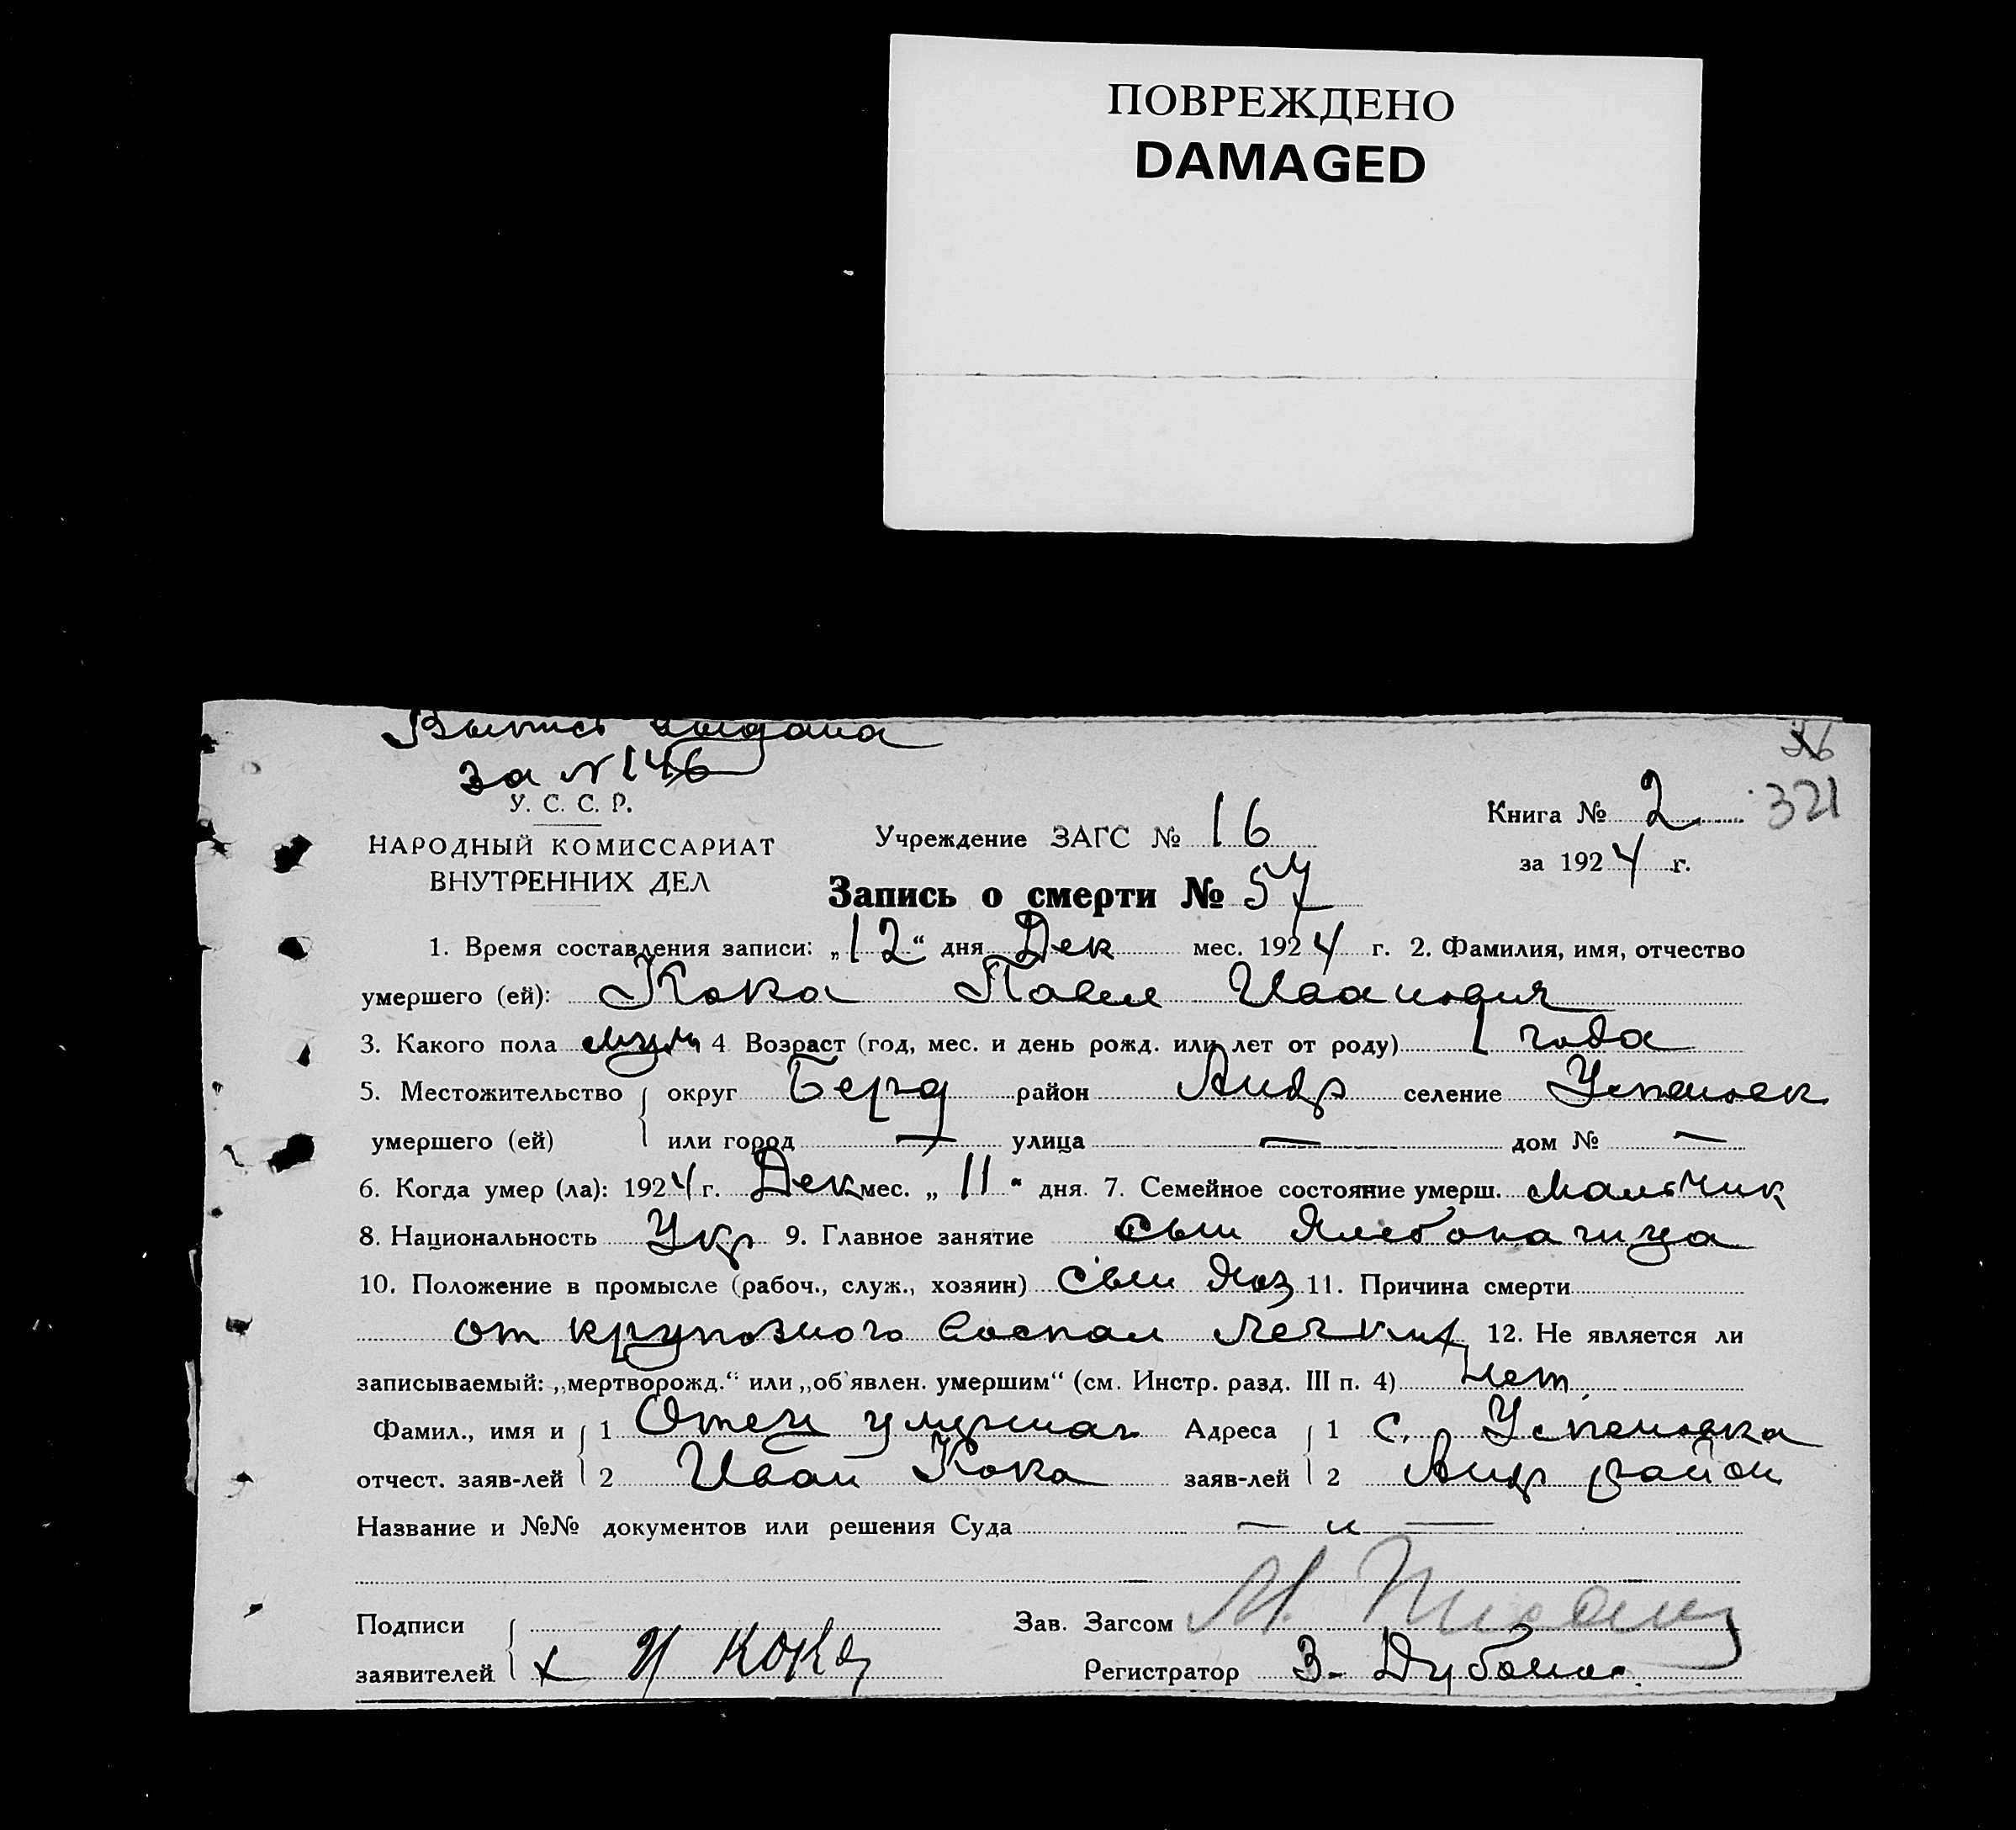 ПОВРЕЖДЕНО
DAMAGED
Выпись выдана
за № 146
321
У. С. С. Р.
НАРОДНЫЙ КОМИССАРИАТ
ВНУТРЕННИХ ДЕЛ
Учреждение ЗАГС № 16
Книга № 2
за 1924 г.
Запись о смерти № 57
1. Время составления записи: „12“ дня Дек мес. 1924 г. 2. Фамилия, имя, отчество
умершего (ей): Кока Павел Иванович
3. Какого пола муж 4 Возраст (год, мес. и день рожд. или лет от роду) 1 года
5. Местожительство округ Берд район Андр селение Успеновк
умершего (ей) или город — улица — дом № —
6. Когда умер (ла): 1924 г. Дек мес. „11“ дня. 7. Семейное состояние умерш. мальчик
8. Национальность Укр 9. Главное занятие сын Хлебопашца
10. Положение в промысле (рабоч., служ., хозяин) сын Хоз 11. Причина смерти
от крупозного воспал легких 12. Не является ли
записываемый: „мертворожд.“ или „об'явлен. умершим“ (см. Инстр. разд. III п. 4) нет
Фамил., имя и 1 Отец умершаг Адреса 1 с. Успеновка
отчест. заяв-лей 2 Иван Кока заяв-лей 2 Андр район
Название и №№ документов или решения Суда — и —
Подписи Зав. Загсом М.
заявителей х И Кока Регистратор З.